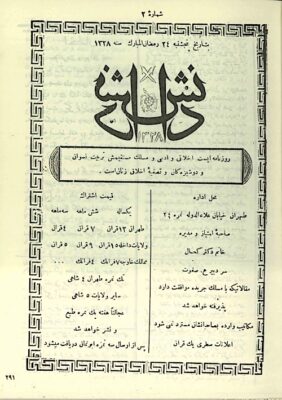 شمارهٔ ۲
بتاریخ پنجشنبه ۲۴ رمضان المبارك سنه ۱۳۲۸
دانش
۱۳۲۸
روزنامه ایست اخلاقی و ادبی و مسلك مستقیمش تربیت نسوان
و دوشیزه‌گان و تصفیهٔ اخلاق زنان است .
محل اداره
طهران خیابان علاءالدوله نمره ۲۴
صاحبهٔ امتیاز و مدیره
خانم دکتر کحال
سر دبیر ع. صفوت
مقالاتیکه با مسلك جریده موافقت دارد
پذیرفته خواهد شد
مکاتیب وارده بصاحبانشان مسترد نمی شود
اعلانات سطری یك قران
قیمت اشتراك
یکساله شش ماهه سه ماهه
طهران ۱۲ قران ۷ قران ۴ قران
ولایات داخله ۱۵ قران ۹ قران ۵ قران
ممالك خارجه
تك نمره طهران ۴ شاهی
سایر ولایات ۵ شاهی
عجالتاً هفته یك نمره طبع
و نشر خواهد شد
پس از ارسال سه نمره ابونمان دریافت میشود
۲۹۱